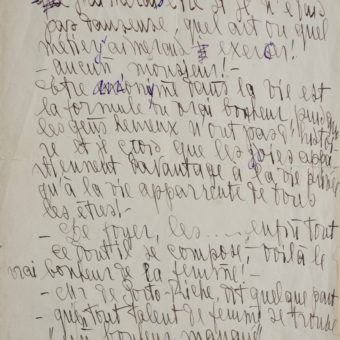 pas danseuse, quel art ou quel
métier j'aimerais exercer!
- aucun monsieur! -
être anonyme dans la vie est
la formule du vrai bonheur, puisque
les gens heureux n'ont pas d'histoi
re et je crois que les joies appar
tiennent davantage à la vie privée
qu'à la vie apparente de tous
les êtres! -
- Le foyer, les ...... enfin tout
ce dont il se compose, voilà le
vrai bonheur de la femme! -
- Mr de Porto-Riche, dit quelque part
- qu'en tout talent de femme se trouve
"un bonheur manqué"